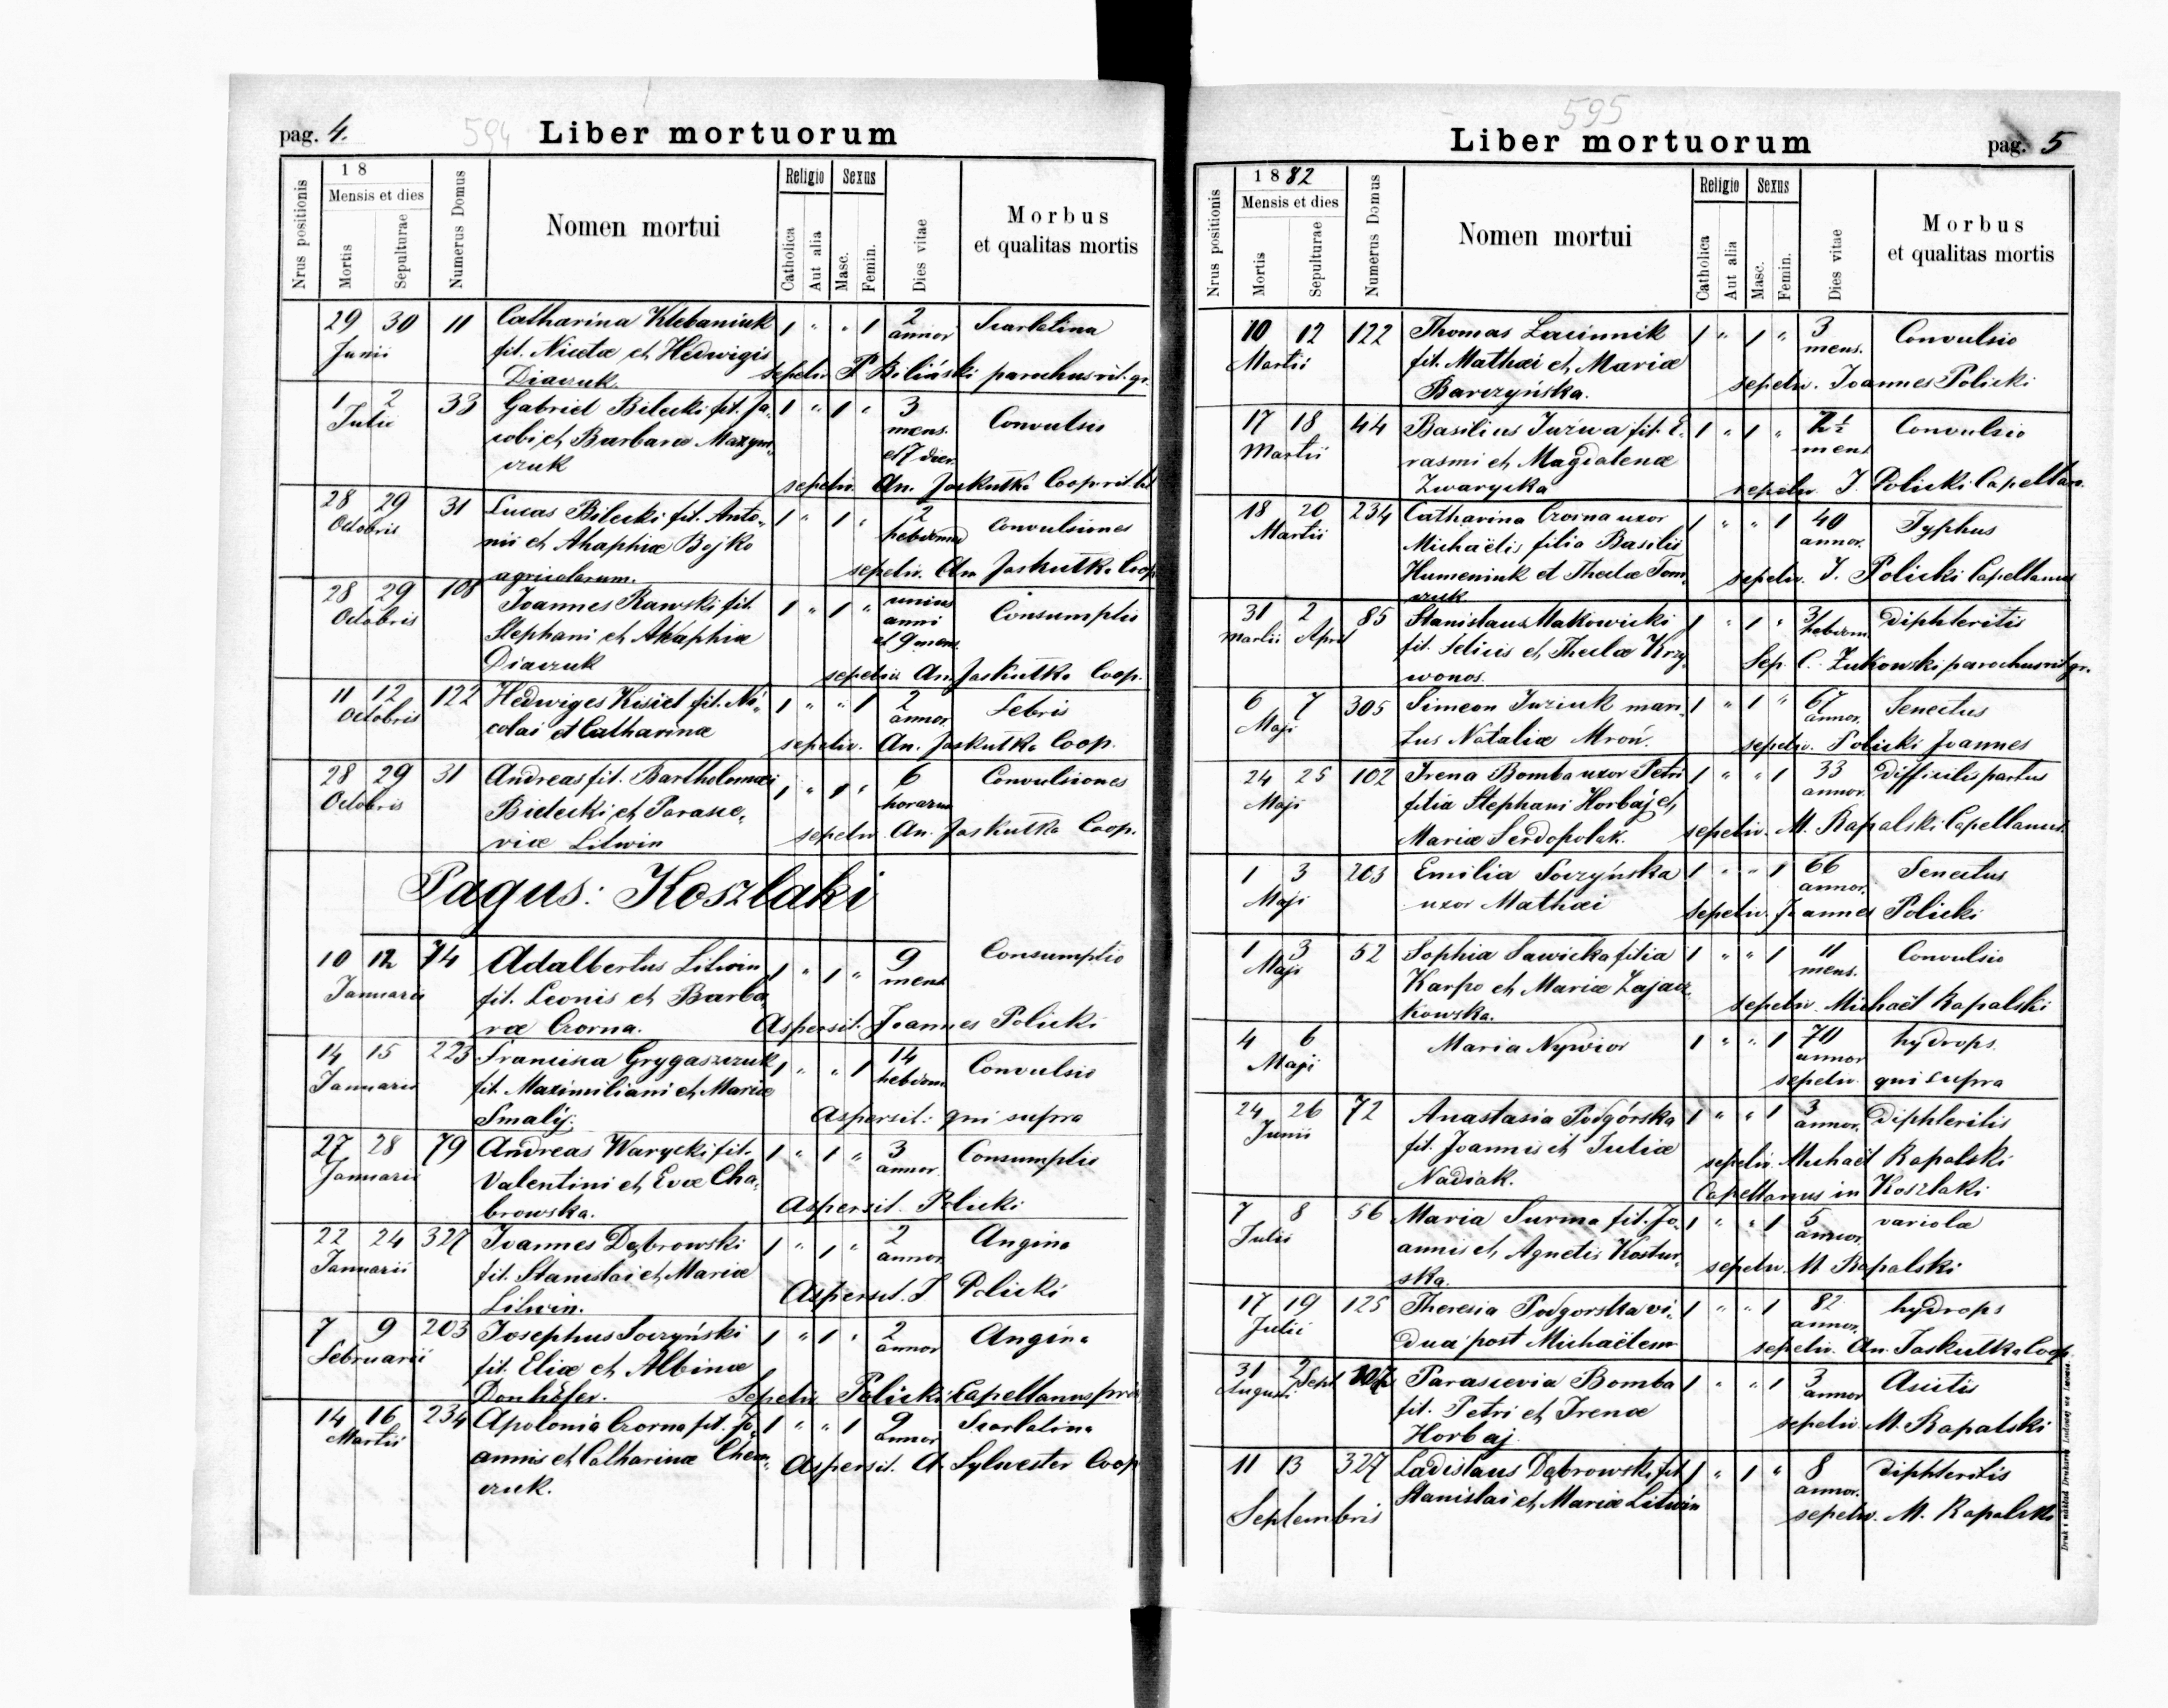 pag. 4.
594
Liber mortuorum
Nrus positionis
18
Mensis et dies
Mortis
Sepulturae
Numerus Domus
Nomen mortui
Religio
Catholica
Aut alia
Sexus
Masc.
Femin.
Dies vitae
Morbus
et qualitas mortis
29 30 11 Catharina Klebaniuk 1 " " 1 2 Scarlatina
Junii fil. Nicetæ et Hedwigis annor
Diaczuk. sepeliv. P. Biliński parochus rit. gr.
1 2 33 Gabriel Bilecki fil. Ja- 1 " 1 " 3 Convulsio
Julii cobi et Barbaræ Maxym- mens.
czuk et 7 dier.
sepeliv. An. Jaskułka Coop. rit. lat
28 29 31 Lucas Bilecki fil. Anto- 1 " 1 " 2 Convulsiones
Octobris nii et Ahaphiæ Bojko hebdomad
agricolarum. sepeliv. An Jaskułka Coop.
28 29 108 Joannes Rawski fil. 1 " 1 " unius Consumptio
Octobris Stephani et Ahaphiæ anni
et 9 mens.
Diaczuk sepeliv. An. Jaskułka Coop.
11 12 122 Hedwiges Kisiel fil. Ni- 1 " " 1 2 Febris
Octobris colai et Catharinæ annor.
sepeliv. An. Jaskułka Coop.
28 29 31 Andreas fil. Bartholomæi 1 " 1 " 6 Convulsiones
Octobris Bielecki et Parasce- horarum
viæ Litwin sepeliv. An. Jaskułka Coop.
Pagus: Koszlaki
10 12 74 Adalbertus Litwin 1 " 1 " 9 Consumptio
Januarii fil. Leonis et Barba- mens
ræ Czorna. Aspersit. Joannes Policki
14 15 223 Francisca Grygaszczuk 1 " " 1 14 Convulsio
Januarii fil. Maximiliani et Mariæ hebdom.
Smalij. Aspersit: qui supra
27 28 79 Andreas Warycki fil. 1 " 1 " 3 Consumptio
Januarii Valentini et Evæ Cha- annor
browska. Aspersit. Policki
22 24 327 Joannes Dąbrowski 1 " 1 " 2 Angina
Januarii fil. Stanislai et Mariæ annor.
Litwin. Aspersit. J Policki
7 9 203 Josephus Soczyński 1 " 1 " 2 Angina
Februarii fil. Eliæ et Albinæ annor
Donhöfer. Sepeliv Policki Capellanus
14 16 234 Apolonia Czorna fil. Jo- 1 " " 1 9 Scarlatina
Martii annis et Catharinæ Chem- annor
czuk. Aspersit. A. Sylwester Coop
595
Liber mortuorum
pag. 5
Nrus positionis
1882
Mensis et dies
Mortis
Sepulturae
Numerus Domus
Nomen mortui
Religio
Catholica
Aut alia
Sexus
Masc.
Femin.
Dies vitae
Morbus
et qualitas mortis
10 12 122 Thomas Lacinnik 1 " 1 " 3 Convulsio
Martii fil. Mathæi et Mariæ mens.
Barczyńska. sepeliv. Joannes Policki
17 18 44 Basilius Juzwa fil. E- 1 " 1 " 2½ Convulsio
Martii rasmi et Magdalenæ mens
Zwarycka sepeliv. J. Policki Capellan.
18 20 234 Catharina Czorna uxor 1 " " 1 40 Typhus
Martii Michaëlis filia Basilii annor.
Humeniuk et Theclæ Tom- sepeliv. J. Policki Capellanus
czuk
31 2 85 Stanislaus Makowicki 1 " 1 " 3 Diphteritis
Martii April fil. Felicis et Theclæ Krzy- hebdom.
wonos. Sep. C. Zukowski parochus rit gr.
6 7 305 Simeon Juziuk mari- 1 " 1 " 67 Senectus
Maji tus Nataliæ Mroń. annor.
sepeliv. Policki Joannes
24 25 102 Irena Bomba uxor Petri 1 " " 1 33 difficilis partus
Maji filia Stephani Horbaj et annor.
Mariæ Serdopolak. sepeliv. M. Rapalski Capellanus.
1 3 203 Emilia Soczyńska 1 " " 1 66 Senectus
Maji uxor Mathæi annor.
sepeliv. Joannes Policki
1 3 52 Sophia Sawicka filia 1 " " 1 11 Convulsio
Maji Karpo et Mariæ Zajacz- mens.
kowska. sepeliv. Michaël Rapalski
4 6 Maria Nywior 1 " " 1 70 hydrops.
Maji annor
sepeliv. qui supra
24 26 72 Anastasia Podgórska 1 " " 1 3 Diphteritis
Junii fil. Joannis et Juliæ annor.
Nadiak. sepeliv. Michaël Rapalski
Capellanus in Koszlaki
7 8 56 Maria Surma fil. Jo- 1 " " 1 5 variola
Julii annis et Agnetis Kostur- annor.
ska. sepeliv. M Rapalski
17 19 125 Theresia Podgorska vi- 1 " " 1 82 hydrops
Julii dua post Michaëlem annor.
sepeliv. An. Jaskułka Coop.
31 2 Sept 102 Parascevia Bomba 1 " " 1 3 Ascitis
Augusti fil. Petri et Irenæ annor
Horbaj. sepeliv. M. Rapalski
11 13 327 Ladislaus Dąbrowski fil 1 " 1 " 8 diphteritis
Stanislai et Mariæ Litwin annor.
Septembris sepeliv. M. Rapalski